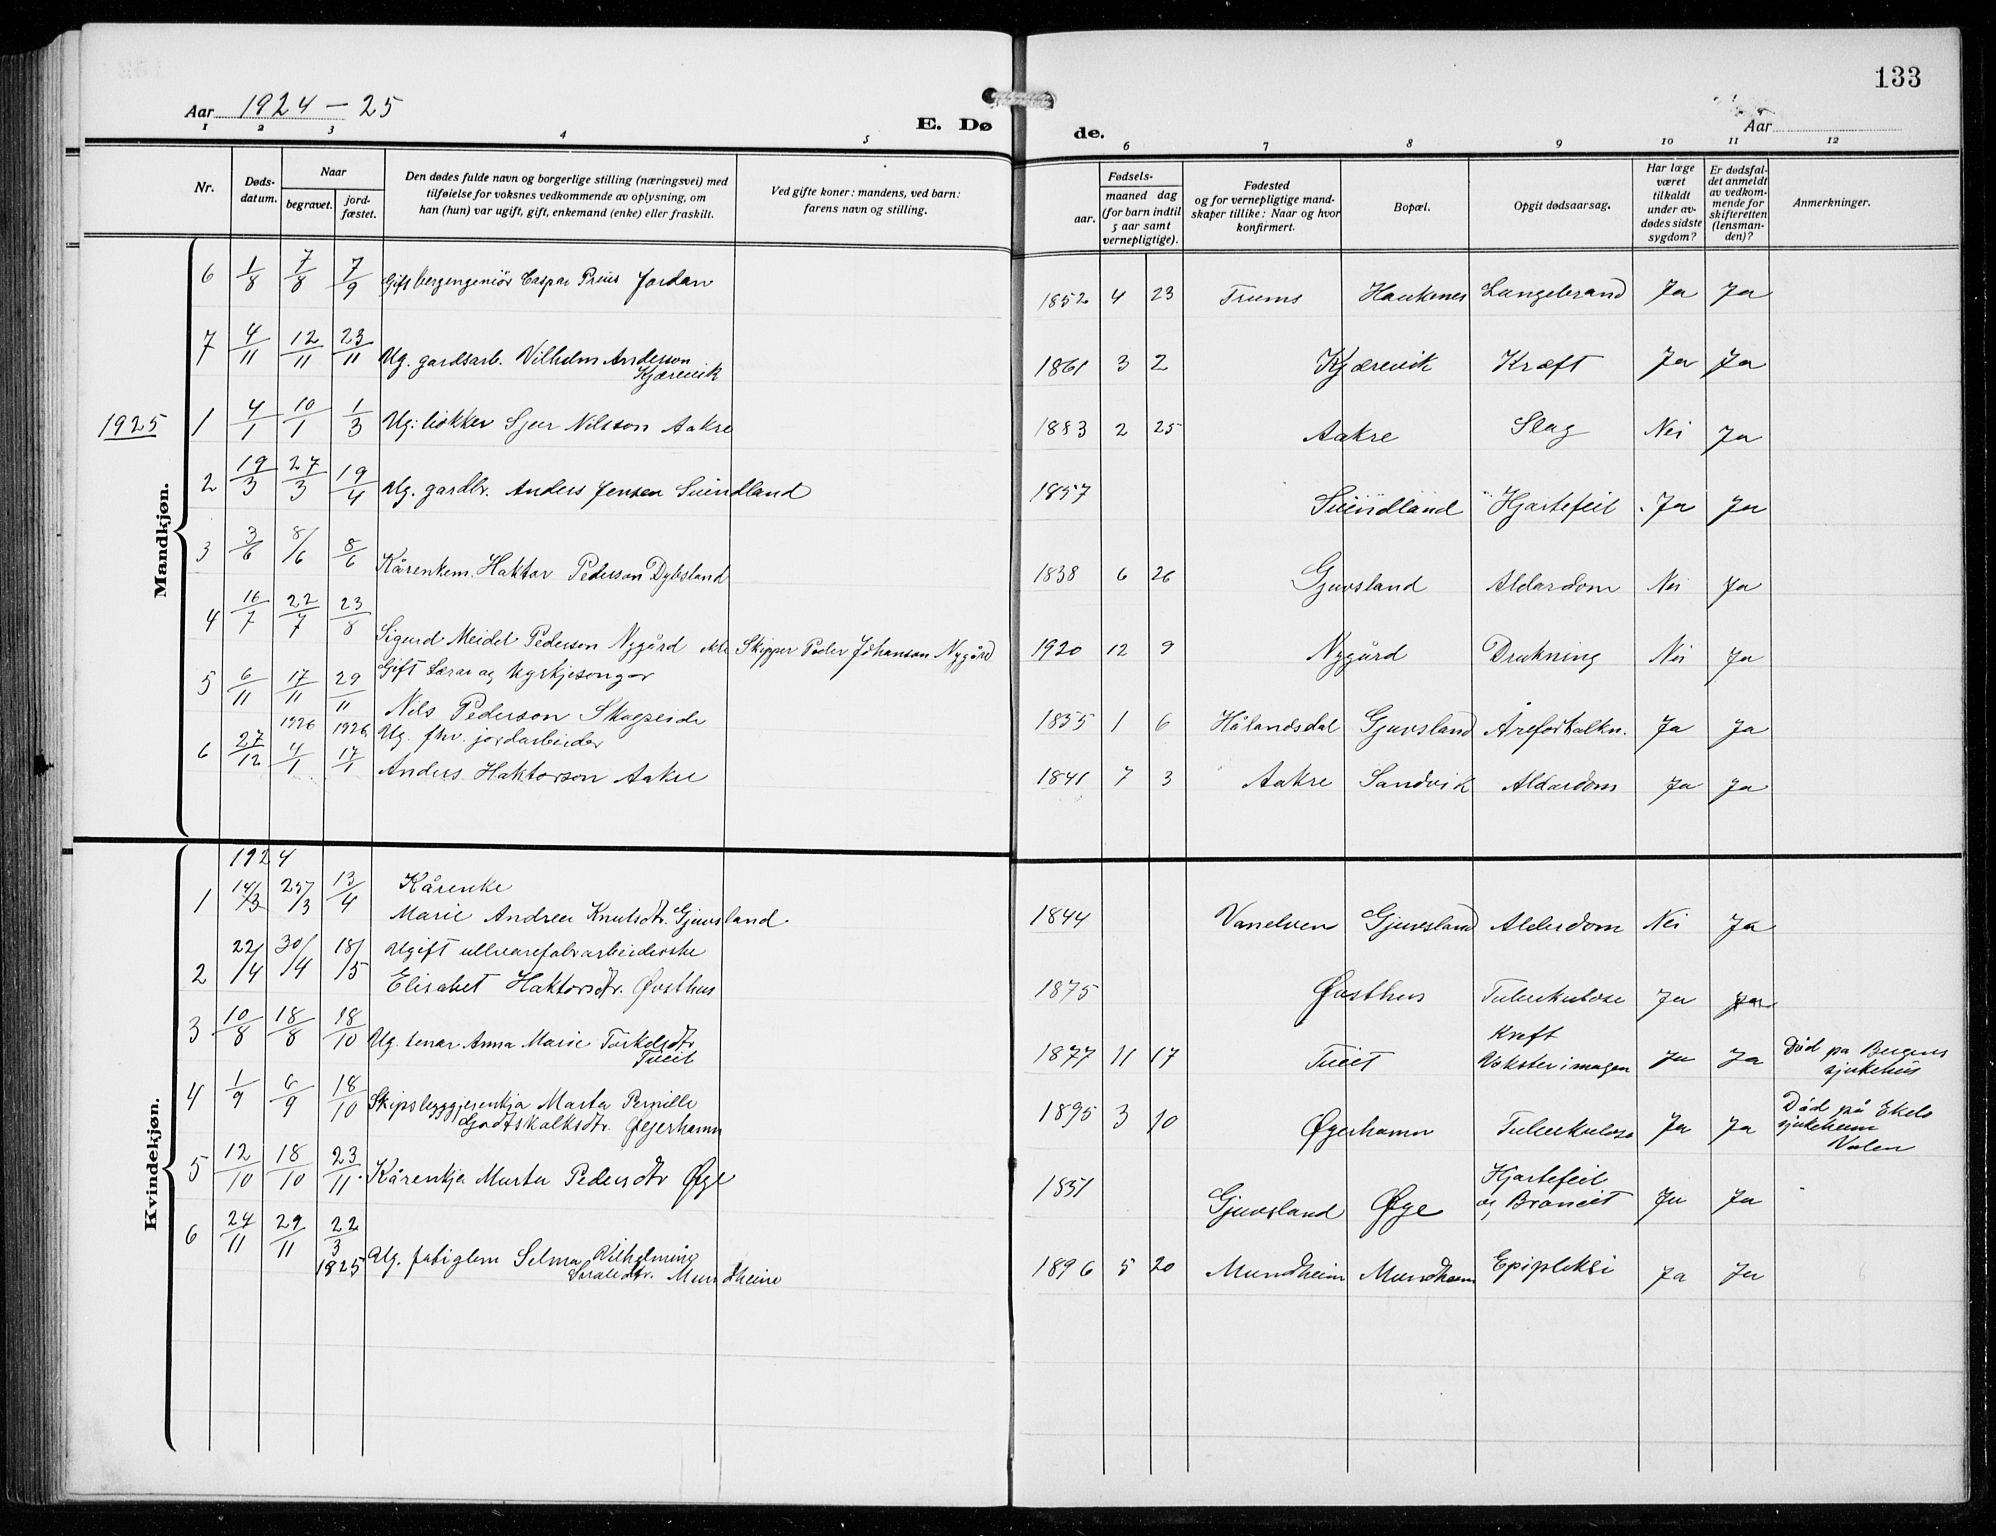 133
Aar 1924 - 25
E. Dø
de.
Aar
1 2 3 4 5 6 7 8 9 10 11 12
Nr.
Døds-
datum.
Naar
begravet.
jord-
fæstet.
Den dødes fulde navn og borgerlige stilling (næringsvei) med
tilføielse for voksnes vedkommende av oplysning, om
han (hun) var ugift, gift, enkemand (enke) eller fraskilt.
Ved gifte koner: mandens, ved barn:
farens navn og stilling.
Fødsels-
aar.
maaned dag
(for barn indtil
5 aar samt
vernepligtige).
Fødested
og for vernepligtige mand-
skaper tillike: Naar og hvor
konfirmert.
Bopæl.
Opgit dødsaarsag.
Har læge
været
tilkaldt
under av-
dødes sidste
sygdom?
Er dødsfal-
det anmeldt
av vedkom-
mende for
skifteretten
(lensman-
den)?
Anmerkninger.
Mandkjøn.
6 1/8 7/8 7/9 Gift bergengeniør Caspar Preus Jordan 1852 4 23 Trums Haukenes Lungebrand Ja Ja
7 4/11 12/11 23/11 Ug. gardsarb. Vilhelm Anderson
Kjærevik 1861 3 2 Kjærevik Kræft Ja Ja
1925
1 4/1 10/1 1/3 Ug. bøkker Sjur Nilsson Aakre 1883 2 25 Aakre Slag Nei Ja
2 19/3 27/3 19/4 Ug. gardbr. Anders Jensen Suindland 1857 Suindland Hjartefeil Ja Ja
3 3/6 8/6 8/6 Kårenkem. Haktor Pederson Dybsland 1838 6 26 Gjuvsland Aldardom Nei Ja
4 16/7 22/7 23/8 Sigurd Meidel Pederson Nygård ekte Skipper Peder Johanson Nygård 1920 12 9 Nygård Drukning Nei Ja
5 6/11 17/11 29/11 Gift Lærar og kyrkjesongar
Nils Pederson Skogseide 1855 1 6 Hålandsdal Gjuvsland Åreforkalkn. Ja Ja
1926 1926
6 27/12 4/1 17/1 Ug. fhv. jordarbeider
Anders Haktorson Aakre 1841 7 3 Aakre Sandvik Aldardom Ja Ja
Kvindekjøn.
1924
1 14/3 25/3 13/4 Kårenke
Marie Andrea Knutsdtr. Gjuvsland 1844 Vanelven Gjuvsland Alderdom Nei Ja
2 22/4 30/4 18/5 Ugift ullvarefabrarbeiderske
Elisabet Haktorsdtr. Øvsthus 1875 Øvsthus Tuberkulose Ja
3 10/8 18/8 18/10 Ug. tenar Anna Marie Torkelsdtr
Tveit 1877 11 17 Tveit Kreft
Vokster i magen Ja Ja Død på Bergens
sjukehus
4 1/9 6/9 18/10 Skipsbyggjerenkja Marta Pernille
Godtskalksdtr. Øyerhamn 1895 3 10 Øyerhamn Tuberkulose Ja Ja Død på Ekels
sjukeheim
Valen
5 12/10 18/10 23/11 Kårenkja Marta Pedersdtr Øye 1851 Gjuvsland Øye Hjartefeil
og Broncit Ja Ja
6 24/11 29/11 22/3
1825 Ug. fabiglem Selma Vilhelmine
Mundheim 1896 5 20 Mundheim Mundheim Epipleksi Ja Ja